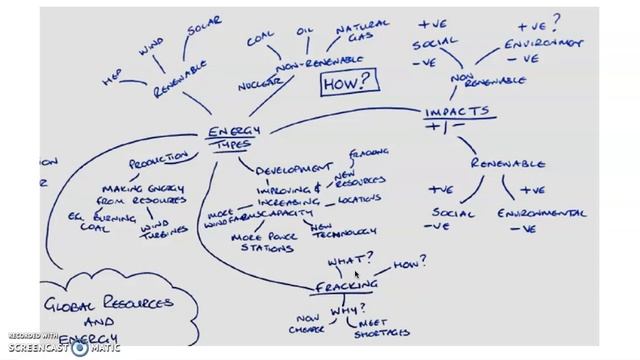 +VE
+VE ?
SOLAR
WIND
HEP
RENEWABLE
COAL
OIL
NATURAL
GAS
NON-RENEWABLE
NUCLEAR
HOW?
SOCIAL
-VE
ENVIRONMENT
-VE
NON
RENEWABLE
IMPACTS
+/-
ENERGY
TYPES
RENEWABLE
+VE
SOCIAL
-VE
+VE
ENVIRONMENTAL
-VE
PRODUCTION
MAKING ENERGY
FROM RESOURCES
EG. BURNING
COAL
WIND
TURBINES
DEVELOPMENT
FRACKING
IMPROVING &
INCREASING
CAPACITY
NEW
RESOURCES
LOCATIONS
MORE
WINDFARMS
MORE POWER
STATIONS
NEW
TECHNOLOGY
WHAT?
HOW?
FRACKING
WHY?
NOW
CHEAPER
MEET
SHORTAGES
GLOBAL RESOURCES
AND
ENERGY
RECORDED WITH
SCREENCAST MATIC